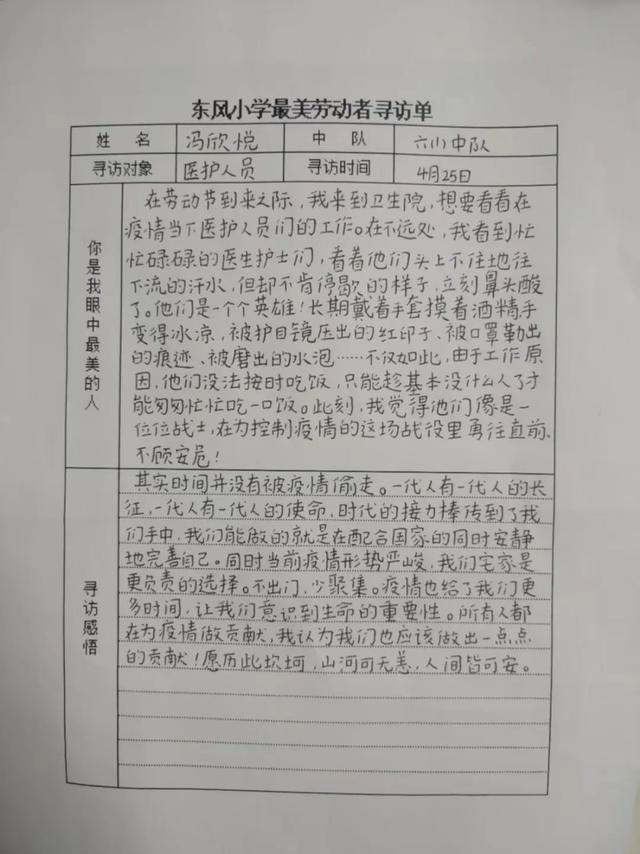 东风小学最美劳动者寻访单
姓 名 冯欣悦 中 队 六(1)中队
寻访对象 医护人员 寻访时间 4月25日
你是我眼中最美的人
在劳动节到来之际,我来到卫生院,想要看看在
疫情当下医护人员们的工作。在不远处,我看到忙
忙碌碌的医生护士们,看着他们头上不住地往
下流的汗水,但却不肯停歇的样子,立刻鼻头酸
了。他们是一个个英雄!长期戴着手套摸着酒精,手
变得冰凉,被护目镜压出的红印子、被口罩勒出
的痕迹、被磨出的水泡……不仅如此,由于工作原
因,他们没法按时吃饭,只能趁基本没什么人了才
能匆匆忙忙吃一口饭。此刻,我觉得他们像是一
位位战士,在为控制疫情的这场战役里勇往直前、
不顾安危!
寻访感悟
其实时间并没有被疫情偷走。一代人有一代人的长
征,一代人有一代人的使命,时代的接力棒传到了我
们手中,我们能做的就是在配合国家的同时安静
地完善自己。同时当前疫情形势严峻,我们宅家是
更负责的选择。不出门,少聚集。疫情也给了我们更
多时间,让我们意识到生命的重要性。所有人都
在为疫情做贡献,我认为我们也应该做出一点点
的贡献!愿历此坎坷,山河可无恙,人间皆可安。